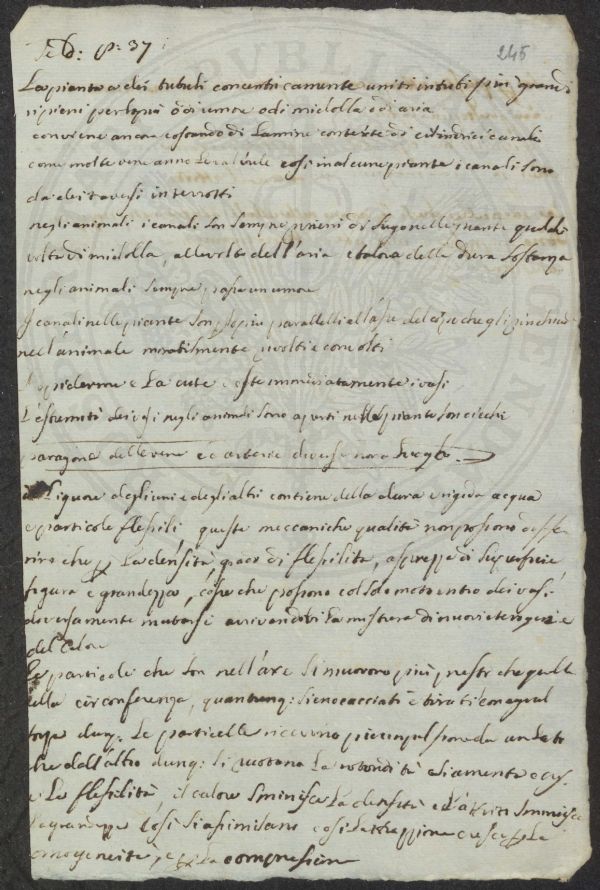 245
p: 37
La pianta a dei tubuli concentricamente uniti in tubi più grandi
ripieni o di umore o di midolla o di aria
conviene ancora di Lamine conteste di cilindrici canali
come molte vene anno le valvule così in alcune piante i canali sono
da dei traversi interrotti
negli animali i canali son sempre ripieni di sugo nelle piante qualche
volta di midolla, alle volte dell'aria e talora della dura sostanza
negli animali sempre passa un umore
I canali nelle piante son paralleli all'asse del corpo che gli
nell'animale mirabilmente rivolti e convolti
epiderme e La cute veste immediatamente i vasi
L'estremità dei vasi negli animali sono aperti nelle piante son ciechi
paragone delle vene e arterie diverse
Liquore degli uni e degli altri contiene della dura e rigida acqua
e particole flessili queste meccaniche qualità non possono diffe
rire che La densità, grado di flessilità, asprezza di superficie
figura e grandezza, cose che possono col solo moto entro dei vasi
diversamente mutarsi arrivandovi La mistura di nuovi
del calore
Le particole che son nell'asse si muovono più preste che quelle
della circonferenza, quantunq: sieno cacciati e tirati con egual
forza dunq: Le particelle ricevono più impulsione da un lato
che dall'altro dunq: si ruotano La rotondità
e La flessilità, il calore sminuisce La densità e
La grandezza Così si assimilano così L'attrazione cresce La
omogeneità, e La compressione